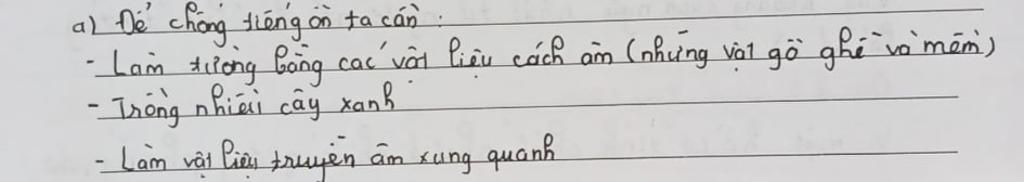 a) Để chống tiếng ồn ta cần:
- Làm tường bằng các vật liệu cách âm (những vật gồ ghề và mềm)
- Trồng nhiều cây xanh
- Làm vật liệu truyền âm xung quanh